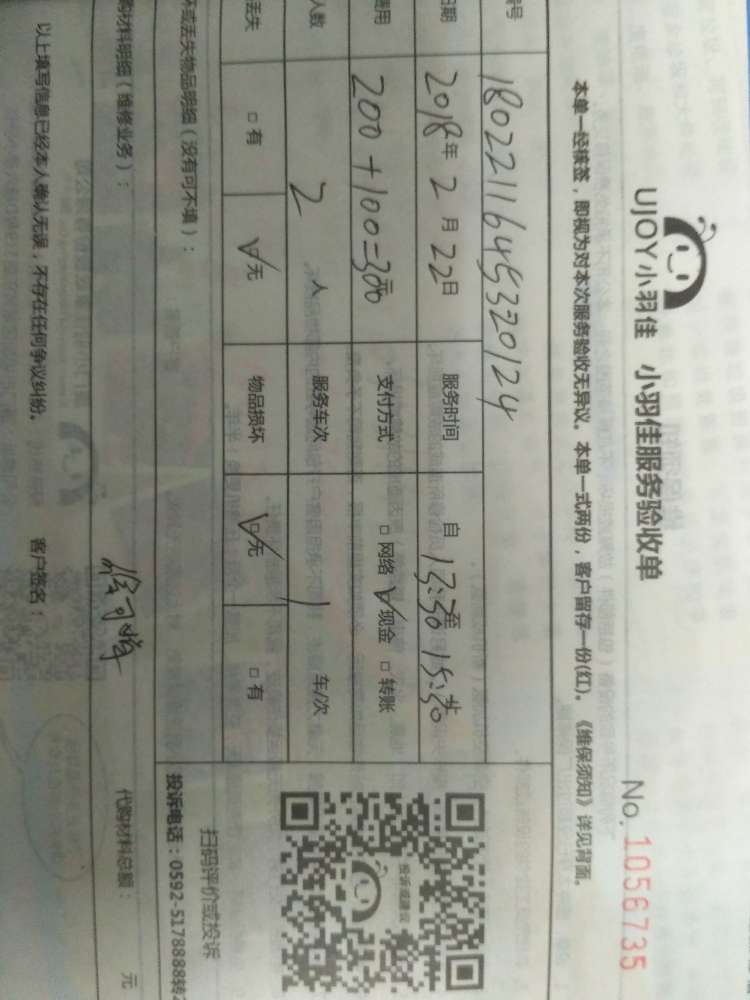 UJOY小羽佳 小羽佳服务验收单
No. 1056735
本单一经核签，即视为对本次服务验收无异议。本单一式两份，客户留存一份(红)。《维保须知》详见背面。
编号 180221164532012４
日期 2018年2月22日 服务时间 自13:30至15:30止
费用 200+100=300元 支付方式 □网络 ☑现金 □转账
人数 2人 服务车次 1 车/次
丢失 □有 ☑无 物品损坏 ☑无 □有
投诉或建议
扫码评价或投诉
投诉电话：0592-5178888转2
坏或丢失物品明细（没有可不填）：
购材料明细（维修业务）：
代购材料总额： 元
以上填写信息已经本人确认无误，不存在任何争议纠纷。 客户签名：